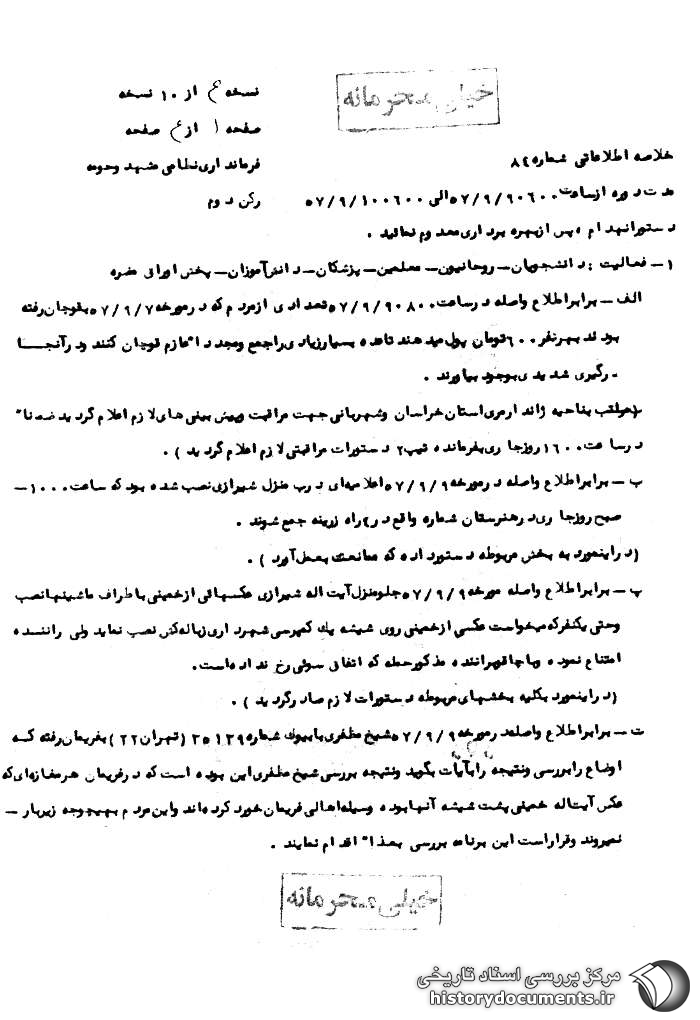 خیلی محرمانه
نسخه ۴ از ۱۰ نسخه
صفحه ۱ از ۴ صفحه
فرمانداری نظامی مشهد وحومه
رکن دوم
خلاصه اطلاعاتی شماره ۸۴
مدت دوره ازساعت ۵۷/۹/۹۰۶۰۰ الی ۵۷/۹/۱۰۰۶۰۰
پس ازبهره برداری معدوم نمائید .
۱ - فعالیت : دانشجویان - روحانیون - معلمین - پزشکان - دانش‌آموزان - پخش اوراق مضره
الف - برابراطلاع واصله درساعت ۵۷/۹/۹۰۸۰۰ تعدادی ازمردم که درمورخه ۵۷/۹/۷ بقوچان رفته
بودند بهرنفر ۶۰۰ تومان پول میدهند تاعده بسیارزیادی راجمع ومجدداً عازم قوچان کنند ودرآنجا
درگیری شدیدی بوجود بیاورند .
(مراتب بناحیه ژاندارمری استان خراسان وشهربانی جهت مراقبت وپیش بینی های لازم اعلام گردید ضمناً
درساعت ۱۶۰۰ روزجاری بفرمانده تیپ ۲ دستورات مراقبتی لازم اعلام گردید ) .
ب - برابراطلاع واصله درمورخه ۵۷/۹/۹ اعلامیه‌ای درب منزل شیرازی نصب شده بود که ساعت ۱۰۰۰ -
صبح روزجاری درهنرستان شماره واقع در راه زرینه جمع شوند .
(دراینمورد به بخش مربوطه دستورداده که ممانعت بعمل آورد ) .
پ - برابراطلاع واصله مورخه ۵۷/۹/۹ جلومنزل آیت اله شیرازی عکسهائی ازخمینی باطراف ماشینهانصب
وحتی یکنفرکه میخواست عکسی ازخمینی روی شیشه یک کمپرسی شهرداری زباله‌کش نصب نماید ولی راننده
امتناع نموده وباچاقوبراننده مذکورحمله که اتفاق سوئی رخ نداده‌است.
(دراینمورد بکلیه بخشهای مربوطه دستورات لازم صادرگردید ) .
ت - برابراطلاع واصله درمورخه ۵۷/۹/۹ شیخ مظفری بابیوک شماره ۳۵۱۲۹ (تهران ۲۲) بفریمان رفته که
اوضاع رابررسی ونتیجه رابآیات بگوید ونتیجه بررسی شیخ مظفری این بوده است که درفریمان هرمغازه‌ای که
عکس آیت‌اله خمینی پشت شیشه آنهابوده وسیله‌اهالی فریمان خورد کرده‌اند واین مردم بهیچوجه زیربار -
نمیروند وقراراست این برنامه بررسی بعداً اقدام نمایند .
خیلی محرمانه
مرکز بررسی اسناد تاریخی
historydocuments.ir